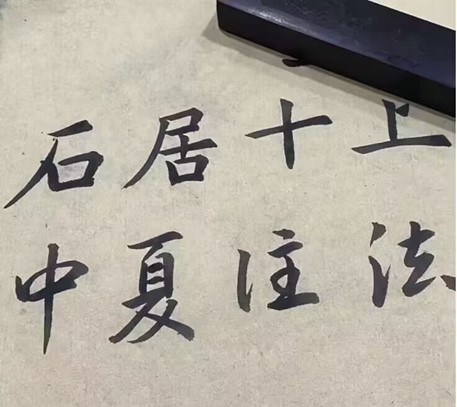 上法
十住
居夏
石中